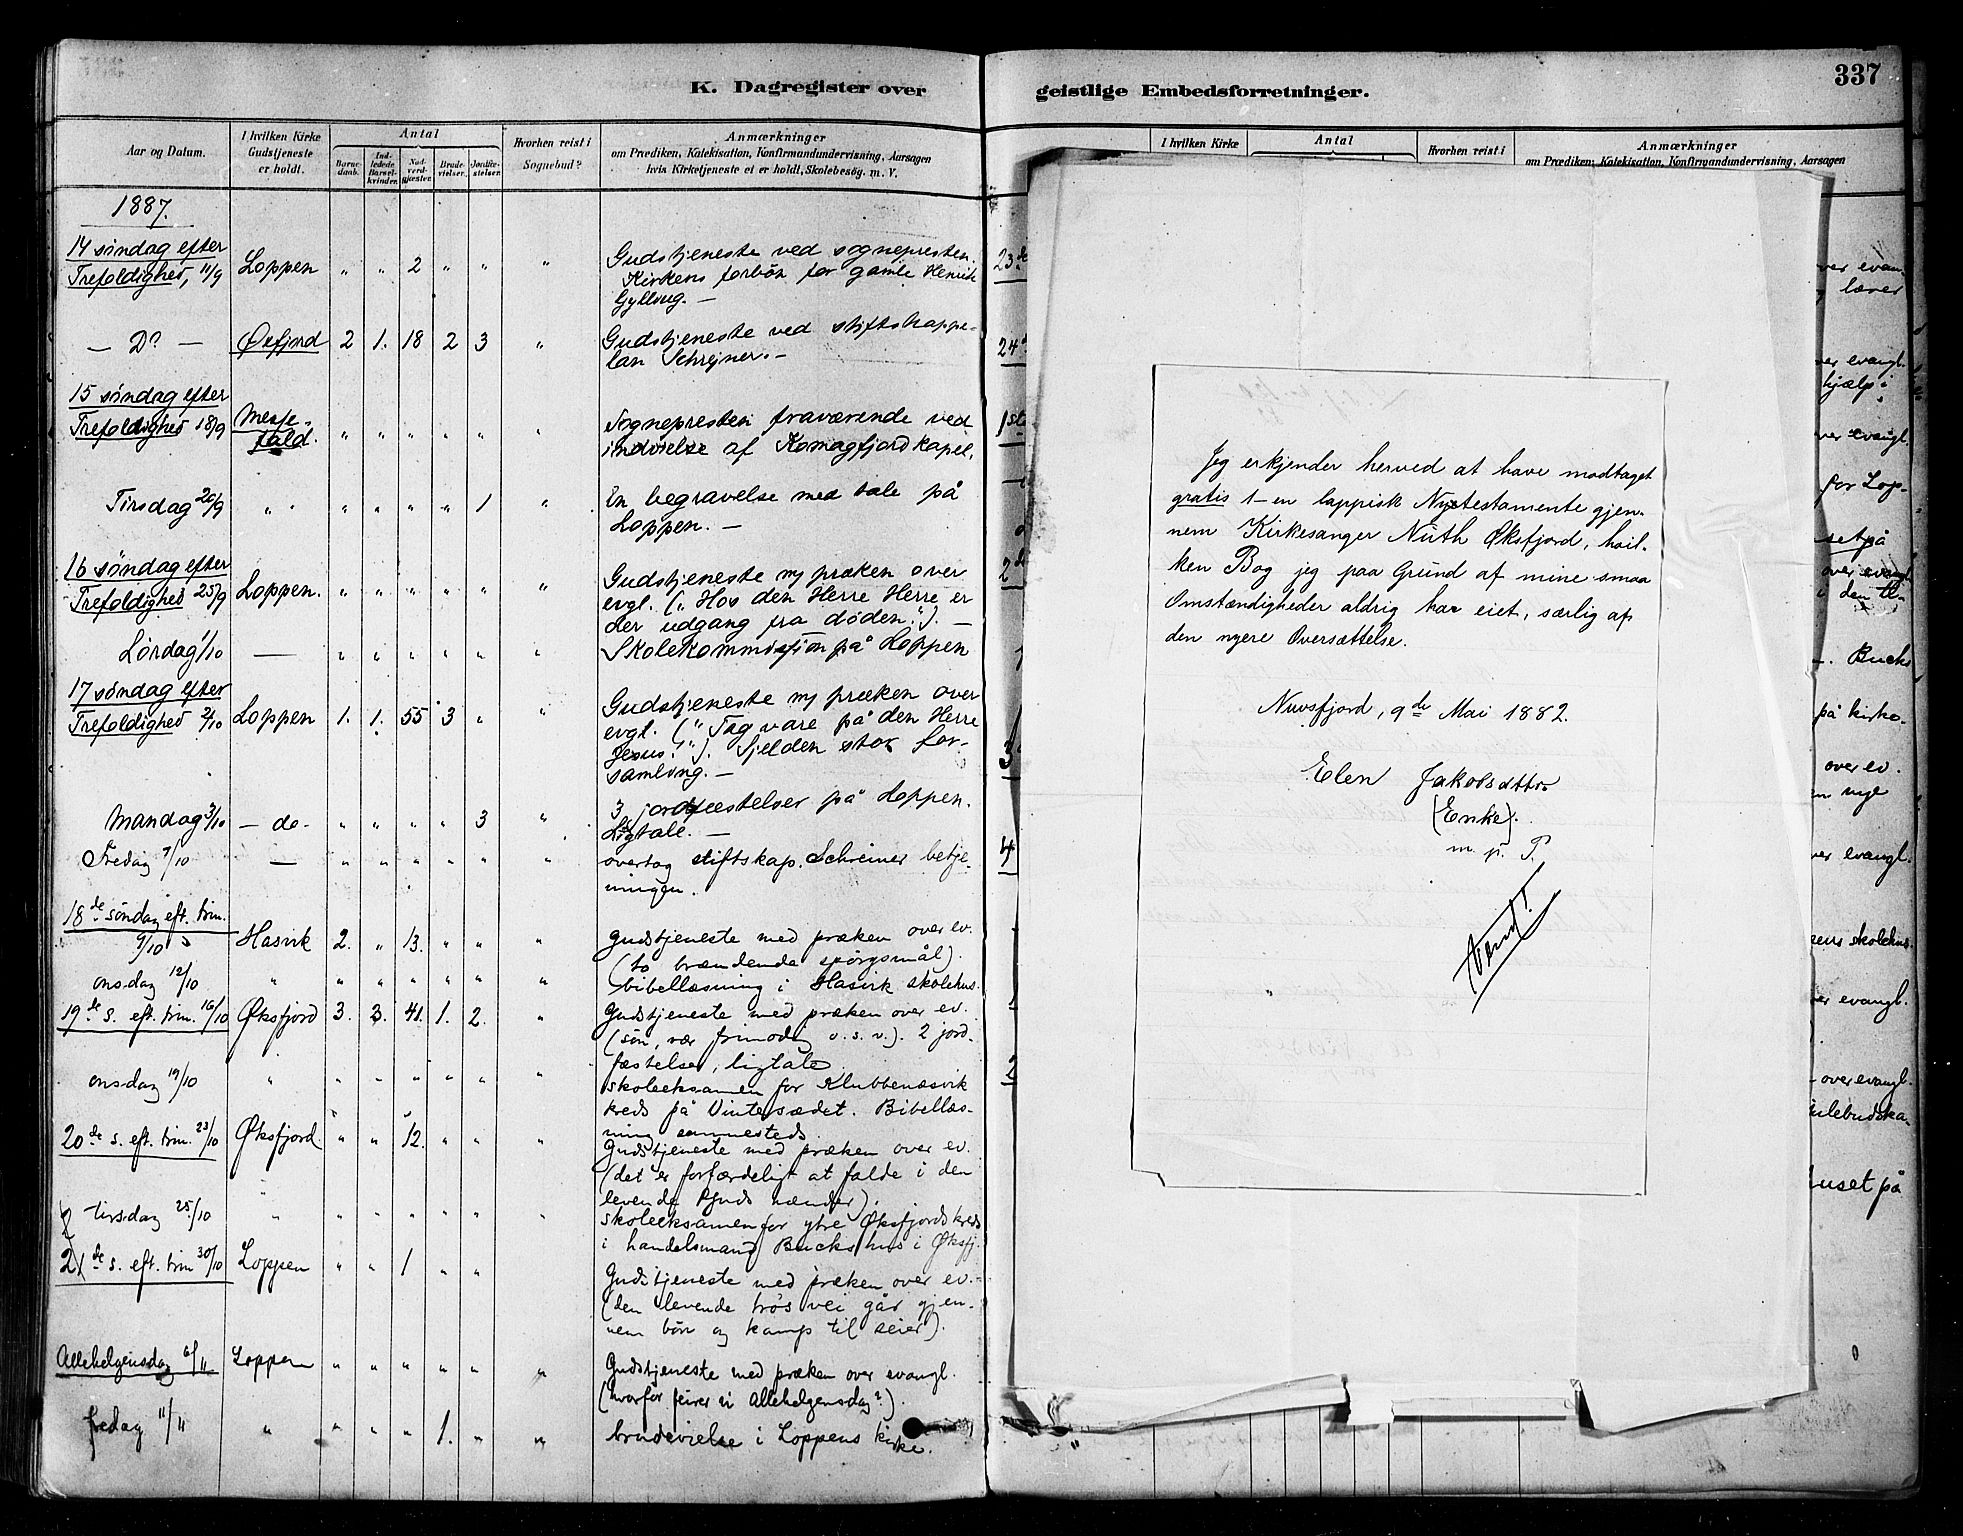 K. Dagregister over
geistlige Embedsforretninger.
337
Aar og Datum.
I hvilken Kirke Gudstjeneste er holdt.
Antal
Barnedaab.
Indledede Barselkvinder.
Nadverdgjæster.
Brudevielser.
Jordfæstelser.
Hvorhen reist i Sognebud?
Anmærkninger
om Prædiken, Katekisation, Konfirmandundervisning, Aarsagen
hvis Kirketjeneste ei er holdt, Skolebesøg. m. V.
1887.
14 søndag efter
Trefoldighed, 11/9 Loppen " " 2 " " " Gudstjeneste ved sognepresten.
Kirkens forbön for gamle
Gylling. —
— Do — Øxfjord 2 1. 18 2 3 " Gudstjeneste ved stiftskappe-
lan Schrejner. —
15 søndag efter
Trefoldighed 18/9 Messe-
fald. " " " " " " Sognepresten fraværende ved
indvielse af Komagfjord kapel.
Tirsdag 20/9 " " " " " " 1 " En begravelse med tale på
Loppen. —
16 søndag efter
Trefoldighed 25/9 Loppen. " " " " " " Gudstjeneste m/ præken over
evgl. („Hos den Herre Herre er
der udgang fra døden."). —
Lørdag 1/10 — " " " " " " Skolekommission på Loppen
17 søndag efter
Trefoldighed 2/10 Loppen 1. 1. 55 3 " " Gudstjeneste m/ præken over
evgl. („Tag vare på den Herre
Jesus!"). Sjelden stor for-
samling. —
Mandag 3/10 — do- " " " " 3 " 3 jordfæstelser på Loppen.
Ligtale. —
Fredag 7/10 — " " " " " " overtog stiftskap. Schreiner betje-
ningen.
18de søndag eft. trin.
9/10 Hasvik 2. " 13. " " " Gudstjeneste med præken over ev.
(to brændende spörgsmål).
onsdag 12/10 " " " " " " " bibellæsning i Hasvik skolehus.
19de s. eft. trin. 16/10 Øksfjord 3. 3. 41. 1. 2. " Gudstjeneste med præken over ev.
(sön, vær frimodig o. s. v.). 2 jord-
fæstelser, ligtale.
onsdag 19/10 " " " " " " " skoleeksamen for Klubbenæsvik
kreds på Vintersædet. Bibellæs-
ning sammesteds.
20de s. eft. trin. 23/10 Øksfjord. " " 12. " " " Gudstjeneste med præken over ev.
(det er forfærdeligt at falde i den
levende Guds hænder).
tirsdag 25/10 " " " " " " " skoleeksamen for ytre Øksfjords kreds
i handelsmand Bucks hus i Øksfj.
21de s. eft. trin 30/10 Loppen " " 1 " " Gudstjeneste med præken over ev.
(den levende tros vei går gjen-
nem bön og kamp til seier).
Allehelgensdag 6/11 Loppen " " " " " " Gudstjeneste med præken over evangl.
(hvorfor feirer vi Allehelgensdag?).
fredag 11/11 " " " " 1. " " brudevielse i Loppens kirke.
I hvilken Kirke
Antal
Hvorhen reist i
Anmærkninger
om Prædiken, Katekisation, Konfirmandundervisning, Aarsagen
23de
24
1ste
2de
3
4
2
Jeg erkjender herved at have modtaget
gratis 1 – en lappisk Nytestamente gjen-
nem Kirkesanger Nuth Øksfjord, hvil-
ken Bog jeg paa Grund af mine smaa
Omstændigheder aldrig har eiet, særlig af
den nyere Oversættelse.
Nuvsfjord, 9de Mai 1882.
Elen Jakobsdttr.
(Enke).
m. p. P.
over evan-
læner
over evangl.
hjælp i
over evangl.
for Lop-
set på
over evangl
i den
. Bucks
på kirke-
over ev.
en nye
over evangl.
ens skolehus.
er evangl.
over evangl.
uset på